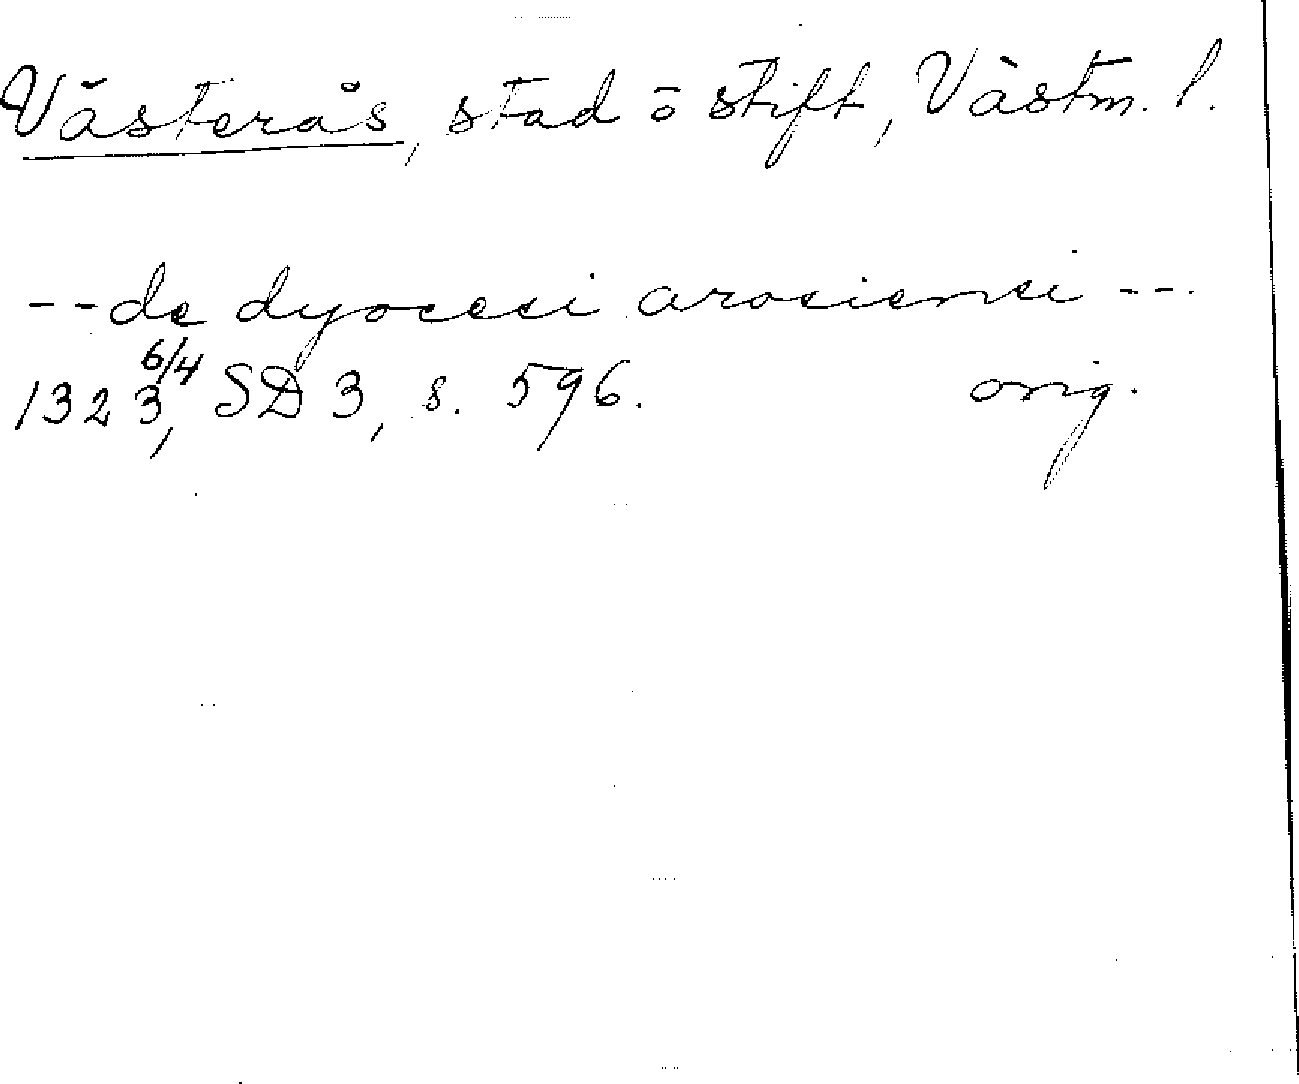 Västerås, stad o stift, Västm. l.
-- de dyocesi arosiensi ---
1323 6/4, SD 3, s. 596. orig.